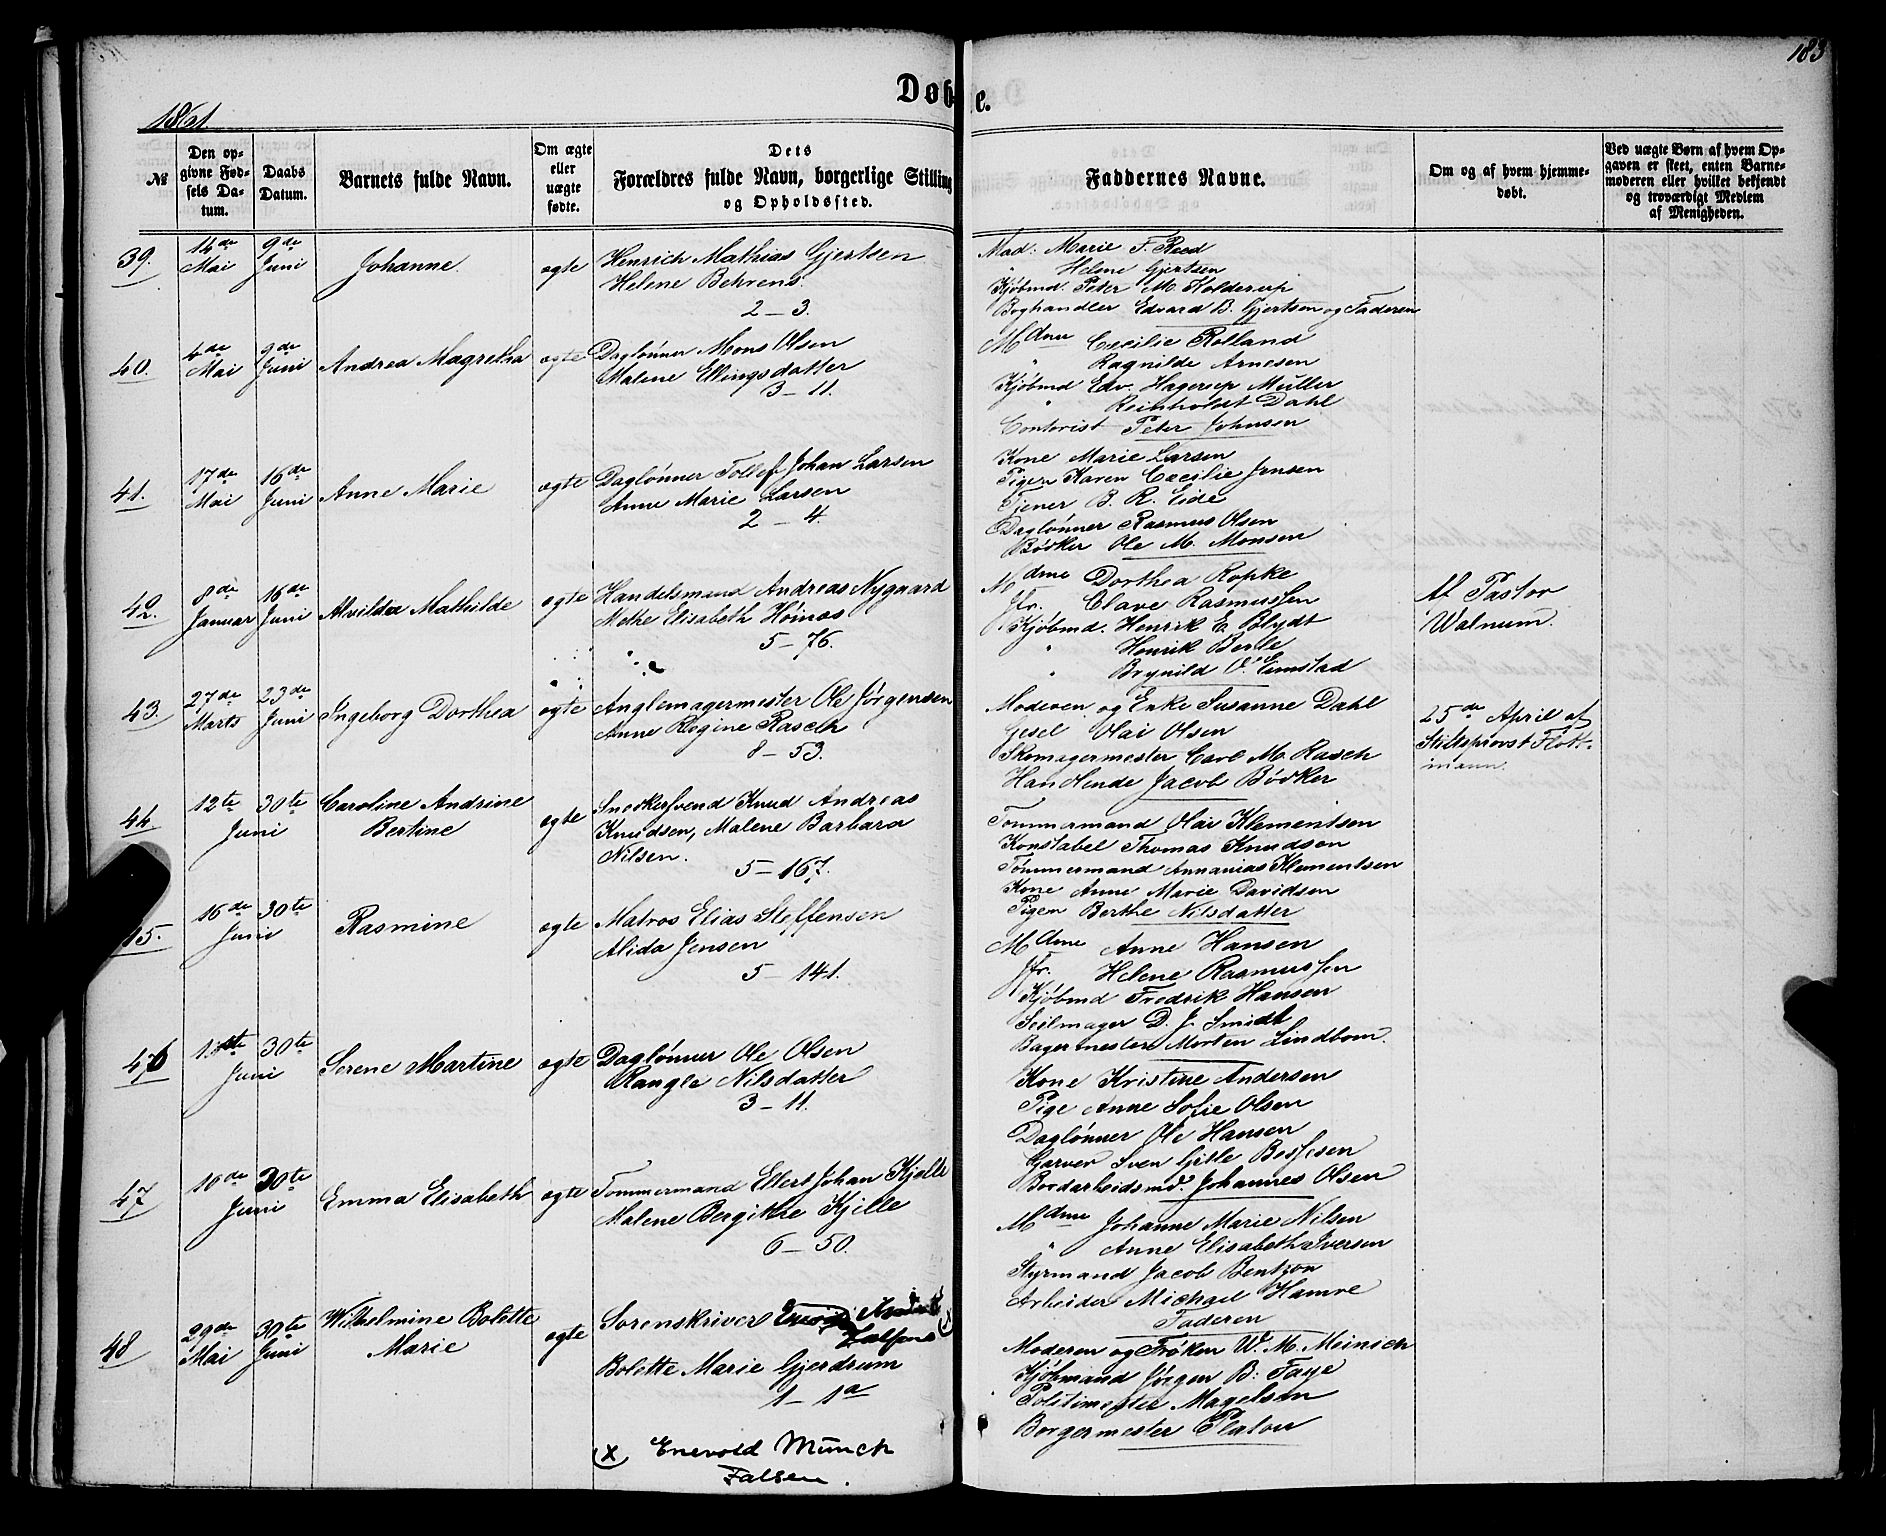 183
Døbte.
1861
№
Den opgivne Fødsels Datum.
Daabs Datum.
Barnets fulde Navn.
Om ægte eller uægte fødte.
Dets Forældres fulde Navn, borgerlige Stilling og Opholdssted.
Faddernes Navne.
Om og af hvem hjemmedøbt.
Ved uægte Børn af hvem Opgaven er skeet, enten Barnemoderen eller hvilket bekjendt og troværdigt Medlem af Menigheden.
39. 14de Mai 9de Juni Johanne. ægte
Henrich Mathias Gjertsen
Helene Behrens.
2 – 3.
Mad: Marie F. Reed
" Helene Gjertsen
Kjøbmd. Peter M. Kolderup
Boghandler Edvard B. Gjertsen og Faderen
40. 6de Mai 9de Juni Andrea Magretha ægte
Daglønner Mons Olsen
Malene Ellingsdatter
3 – 11.
Mdme Cecilie Rolland
" Ragnilde Arnesen
Kjøbmd Edv. Hagerup Müller
" Reinholdt Dahl
Contorist Peter Johnsen
41. 17de Mai 16de Juni Anne Marie ægte
Daglønner Tollef Johan Larsen
Anne Marie Larsen
2 – 4.
Kone Marie Larsen
Pigen Karen Cecilie Jensen
Tjener B. R. Eide
Daglønner Rasmus Olsen
Bødker Ole M. Monsen
42. 8de Januar 16de Juni Alvilda Mathilde ægte
Handelsmand Andreas Nygaard
Methe Elisabeth Høinas
5 – 76.
Mdme Dorthea Ropke
Jfr. Clave Rasmussen
Kjøbmd. Henrik E. Blydt
" Henrik Berle
" Brynild O. Eimstad
Af Pastor
Walnum.
43. 27de Marts 23de Juni Ingeborg Dorthea ægte
Anglemagermester Ole Jørgensen
Anne Regine Rasch
8 – 53.
Moderen og Enke Susanne Dahl
Gesel Olai Olsen
Skomagermester Carl M. Rasch
Handlende Jacob Bödker
25de April af
Stiftsprovst Flott-
mann.
44 12te 30te Juni Caroline Andrine
Bertine ægte
Snedkersvend Knud Andreas
Knudsen, Malene Barbara
Nilsen.
5 – 167.
Tømmermand Olai Klementsen
Konstabel Thomas Knudsen
Tømmermand Annanias Klementsen
Kone Anne Marie Davidsen
Pigen Berthe Nilsdatter
45. 16de 30te Juni Rasmine ægte
Matros Elias Steffensen
Alida Jensen
5 – 141.
Mdme Anne Hansen
Jfr. Helene Rasmussen
Kjøbmd Fredrik Hansen
Seilmager D. J. Smidt
Bagermester Morten Lindbom.
46 30te Juni Serene Martine ægte
Daglønner Ole Olsen
Rangle Nilsdatter
3 – 11.
Kone Kristine Andersen
Pige Anne Sofie Olsen
Daglønner Ole Hansen
Garver Sven Gitle
Bordarbeidsmd. Johannes Olsen
47 16de 30te Juni Emma Elisabeth ægte
Tømmermand Ellert Johan Kjelle
Malene Bergithe Kjille
6 – 50.
Mdme Johanne Marie Nilsen
" Anne Elisabeth Iversen
Styrmand Jacob Bentzon
Arbeider Michael Hamre
Faderen
48 29de Mai 30te Juni Wilhelmine Bolette
Marie ægte
Sorenskriver
Falsen (x
Bolette Marie Gjerdrum
1 – 1a
Moderen og Frøken W. M. Meinich
Kjøbmand Jørgen B: Faye
Politimester Magelsen
Borgermester Platou
(x) Enevold Münch
Falsen.